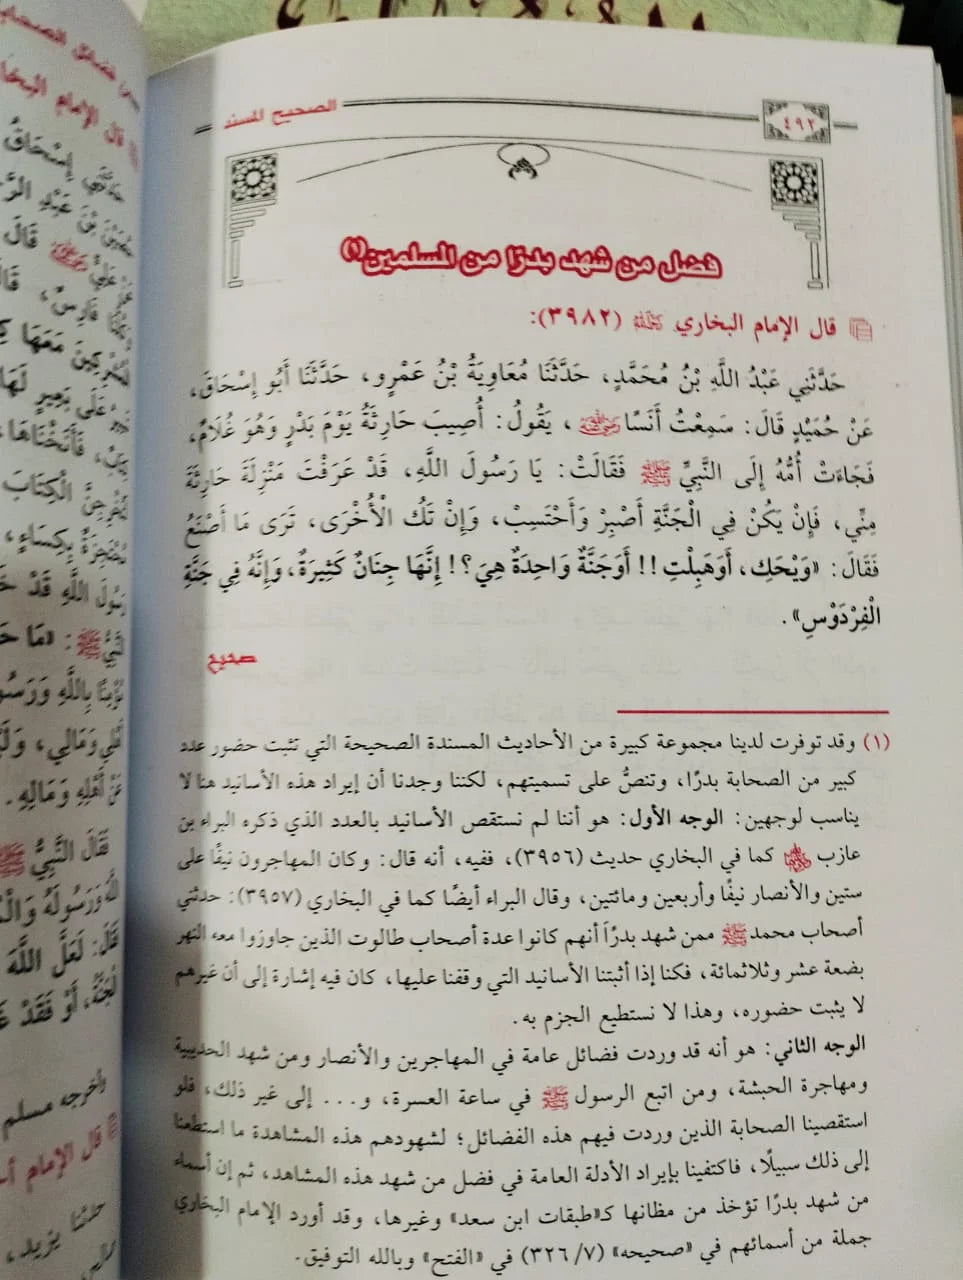 ٤٩٢
الصحيح المسند
فضل من شهد بدرًا من المسلمين(١)
قال الإمام البخاري رحمه الله (٣٩٨٢):
حَدَّثَنِي عَبْدُ اللَّهِ بْنُ مُحَمَّدٍ، حَدَّثَنَا مُعَاوِيَةُ بْنُ عَمْرٍو، حَدَّثَنَا أَبُو إِسْحَاقَ،
عَنْ حُمَيْدٍ قَالَ: سَمِعْتُ أَنَسًا رضي الله عنه، يَقُولُ: أُصِيبَ حَارِثَةُ يَوْمَ بَدْرٍ وَهُوَ غُلَامٌ،
فَجَاءَتْ أُمُّهُ إِلَى النَّبِيِّ ﷺ فَقَالَتْ: يَا رَسُولَ اللَّهِ، قَدْ عَرَفْتَ مَنْزِلَةَ حَارِثَةَ
مِنِّي، فَإِنْ يَكُنْ فِي الْجَنَّةِ أَصْبِرْ وَأَحْتَسِبْ، وَإِنْ تَكُ الْأُخْرَى، تَرَى مَا أَصْنَعُ
فَقَالَ: «وَيْحَكِ، أَوَهَبِلْتِ!! أَوَجَنَّةٌ وَاحِدَةٌ هِيَ؟! إِنَّهَا جِنَانٌ كَثِيرَةٌ، وَإِنَّهُ فِي جَنَّةِ
الْفِرْدَوْسِ».
صحيح
(١) وقد توفرت لدينا مجموعة كبيرة من الأحاديث المسندة الصحيحة التي تثبت حضور عدد
كبير من الصحابة بدرًا، وتنصُّ على تسميتهم، لكننا وجدنا أن إيراد هذه الأسانيد هنا لا
يناسب لوجهين: الوجه الأول: هو أننا لم نستقص الأسانيد بالعدد الذي ذكره البراء بن
عازب رضي الله عنه كما في البخاري حديث (٣٩٥٦)، ففيه، أنه قال: وكان المهاجرون نيفًا على
ستين والأنصار نيفًا وأربعين ومائتين، وقال البراء أيضًا كما في البخاري (٣٩٥٧): حدثني
أصحاب محمد ﷺ ممن شهد بدرًا أنهم كانوا عدة أصحاب طالوت الذين جاوزوا معه النهر
بضعة عشر وثلاثمائة، فكنا إذا أثبتنا الأسانيد التي وقفنا عليها، كان فيه إشارة إلى أن غيرهم
لا يثبت حضوره، وهذا لا نستطيع الجزم به.
الوجه الثاني: هو أنه قد وردت فضائل عامة في المهاجرين والأنصار ومن شهد الحديبية
ومهاجرة الحبشة، ومن اتبع الرسول ﷺ في ساعة العسرة، و... إلى غير ذلك، فلو
استقصينا الصحابة الذين وردت فيهم هذه الفضائل؛ لشهودهم هذه المشاهدة ما استطعنا
إلى ذلك سبيلًا، فاكتفينا بإيراد الأدلة العامة في فضل من شهد هذه المشاهد، ثم إن أسماء
من شهد بدرًا تؤخذ من مظانها كـ«طبقات ابن سعد» وغيرها، وقد أورد الإمام البخاري
جملة من أسمائهم في «صحيحه» (٣٢٦/٧) في «الفتح» وبالله التوفيق.
قال الإمام
مَعَهَا
الْكِتَابَ
بِكِسَاءٍ،
رَسُولَ اللَّهِ قَدْ
بِاللَّهِ
وَمَالِي،
أَهْلِهِ وَمَالِهِ.
لَعَلَّ اللَّهَ
وأخرجه مسلم
قال الإمام
حدثنا يزيد،